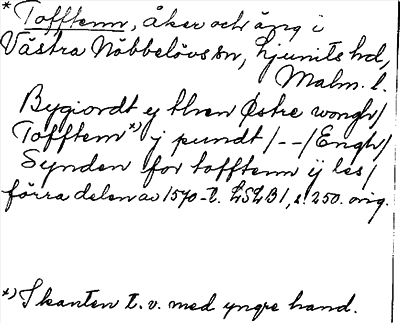 * Tofftenn, åker och äng i
Västra Nöbbelövs sn, Ljunits hd,
Malm. l.
Bygiordt ej thren Østre wongh/
Tofftenn *) j pundt /--/ Engh/
Synden for tofftenn ij les/
förra delen av 1570-t. LSLB1, s. 250. orig.
*) I kanten t.v. med yngre hand.